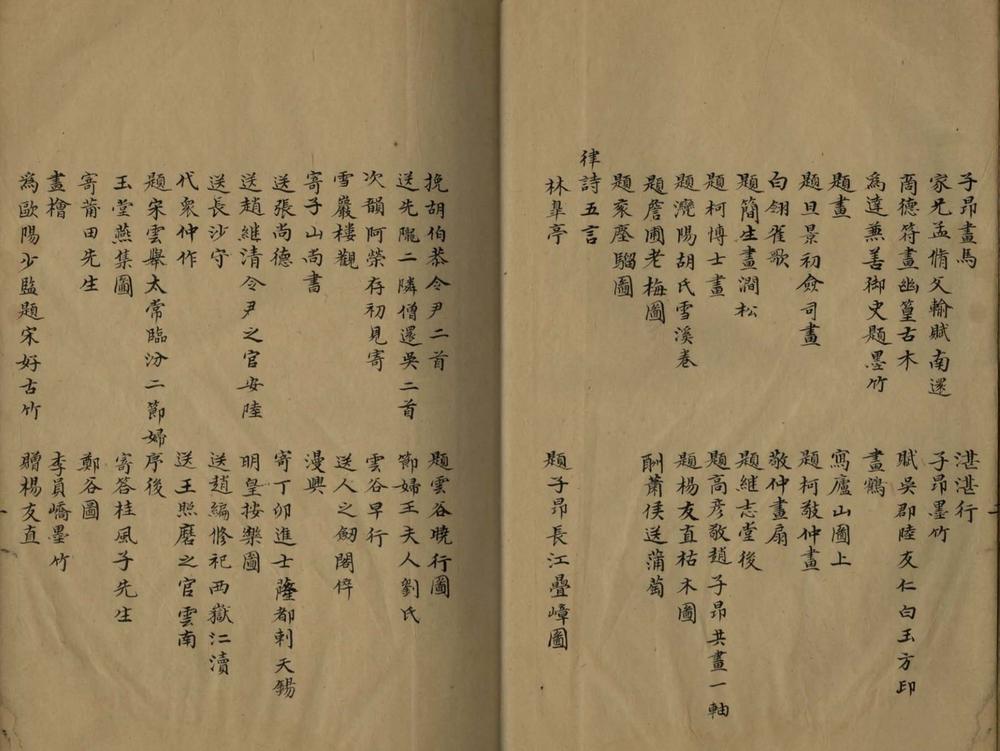 子昂畫馬　湛湛行
家兄孟脩父輸賦南還　子昂墨竹
商德符畫幽篁古木　賦吳郡陸友仁白玉方印
為達兼善御史題墨竹　畫鶴
題畫　寫廬山圖上
題旦景初僉司畫　題柯敬仲畫
白翎雀歌　敬仲畫扇
題簡生畫澗松　題維志堂後
題柯博士畫　題高彥敬趙子昂共畫一軸
題灤陽胡氏雪溪卷　題楊友直枯木圖
題詹圃老梅圖　酬蕭侯送蒲萄
題袤塵騮圖
律詩五言
林皐亭　題子昂長江疊嶂圖
挽胡伯恭令尹二首　題雲谷曉行圖
送先隴二隣僧還吳二首　節婦王夫人劉氏
次韻阿榮存初見寄　雲谷早行
雪巖樓觀　送人之劒閣倅
寄子山尚書　漫興
送張尚德　寄丁卯進士薩都剌天錫
送趙繼清令尹之官安陸　明皇按樂圖
送長沙守　送趙編修祀西嶽江瀆
代衆仲作　送王照磨之官雲南
題宋雲舉太常臨汾二節婦序後
玉堂燕集圖　寄答桂風子先生
寄莆田先生　鄭谷圖
畫檜　李員嶠墨竹
為歐陽少監題宋好古竹　贈楊友直